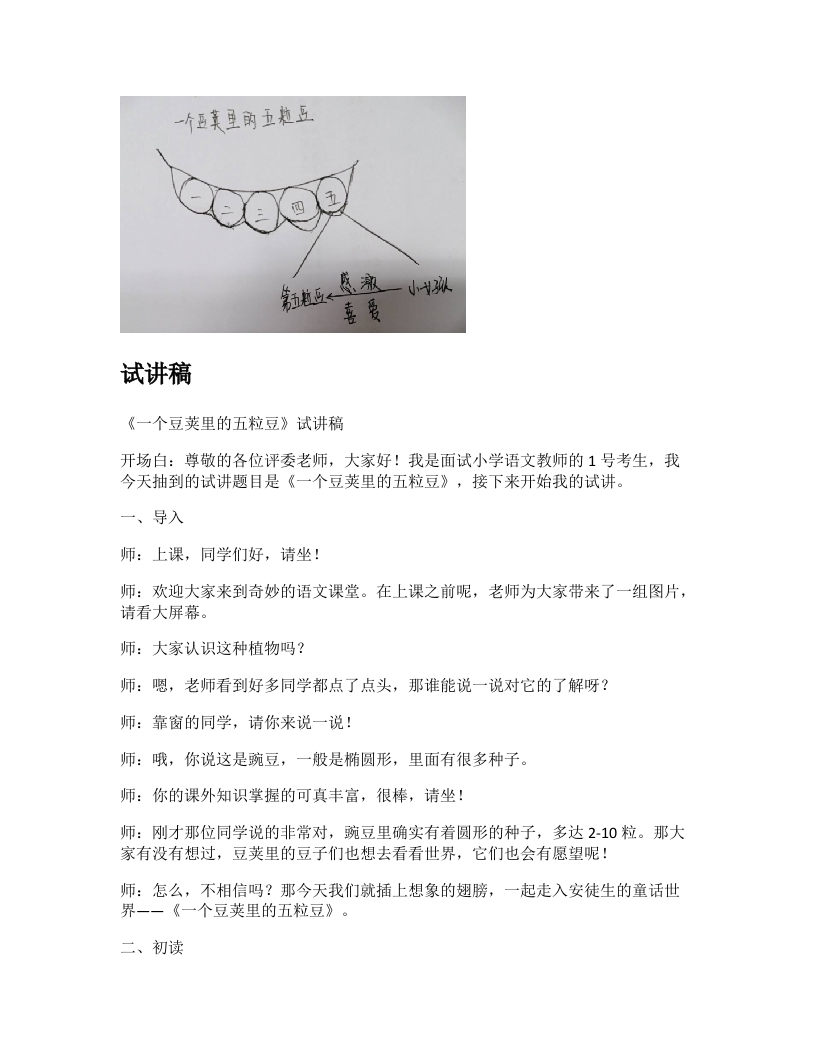 一个豆荚里的五粒豆
一 二 三 四 五
感激
第五粒豆 小女孩
喜爱
试讲稿
《一个豆荚里的五粒豆》试讲稿
开场白：尊敬的各位评委老师，大家好！我是面试小学语文教师的 1 号考生，我
今天抽到的试讲题目是《一个豆荚里的五粒豆》，接下来开始我的试讲。
一、导入
师：上课，同学们好，请坐！
师：欢迎大家来到奇妙的语文课堂。在上课之前呢，老师为大家带来了一组图片，
请看大屏幕。
师：大家认识这种植物吗？
师：嗯，老师看到好多同学都点了点头，那谁能说一说对它的了解呀？
师：靠窗的同学，请你来说一说！
师：哦，你说这是豌豆，一般是椭圆形，里面有很多种子。
师：你的课外知识掌握的可真丰富，很棒，请坐！
师：刚才那位同学说的非常对，豌豆里确实有着圆形的种子，多达 2-10 粒。那大
家有没有想过，豆荚里的豆子们也想去看看世界，它们也会有愿望呢！
师：怎么，不相信吗？那今天我们就插上想象的翅膀，一起走入安徒生的童话世
界——《一个豆荚里的五粒豆》。
二、初读